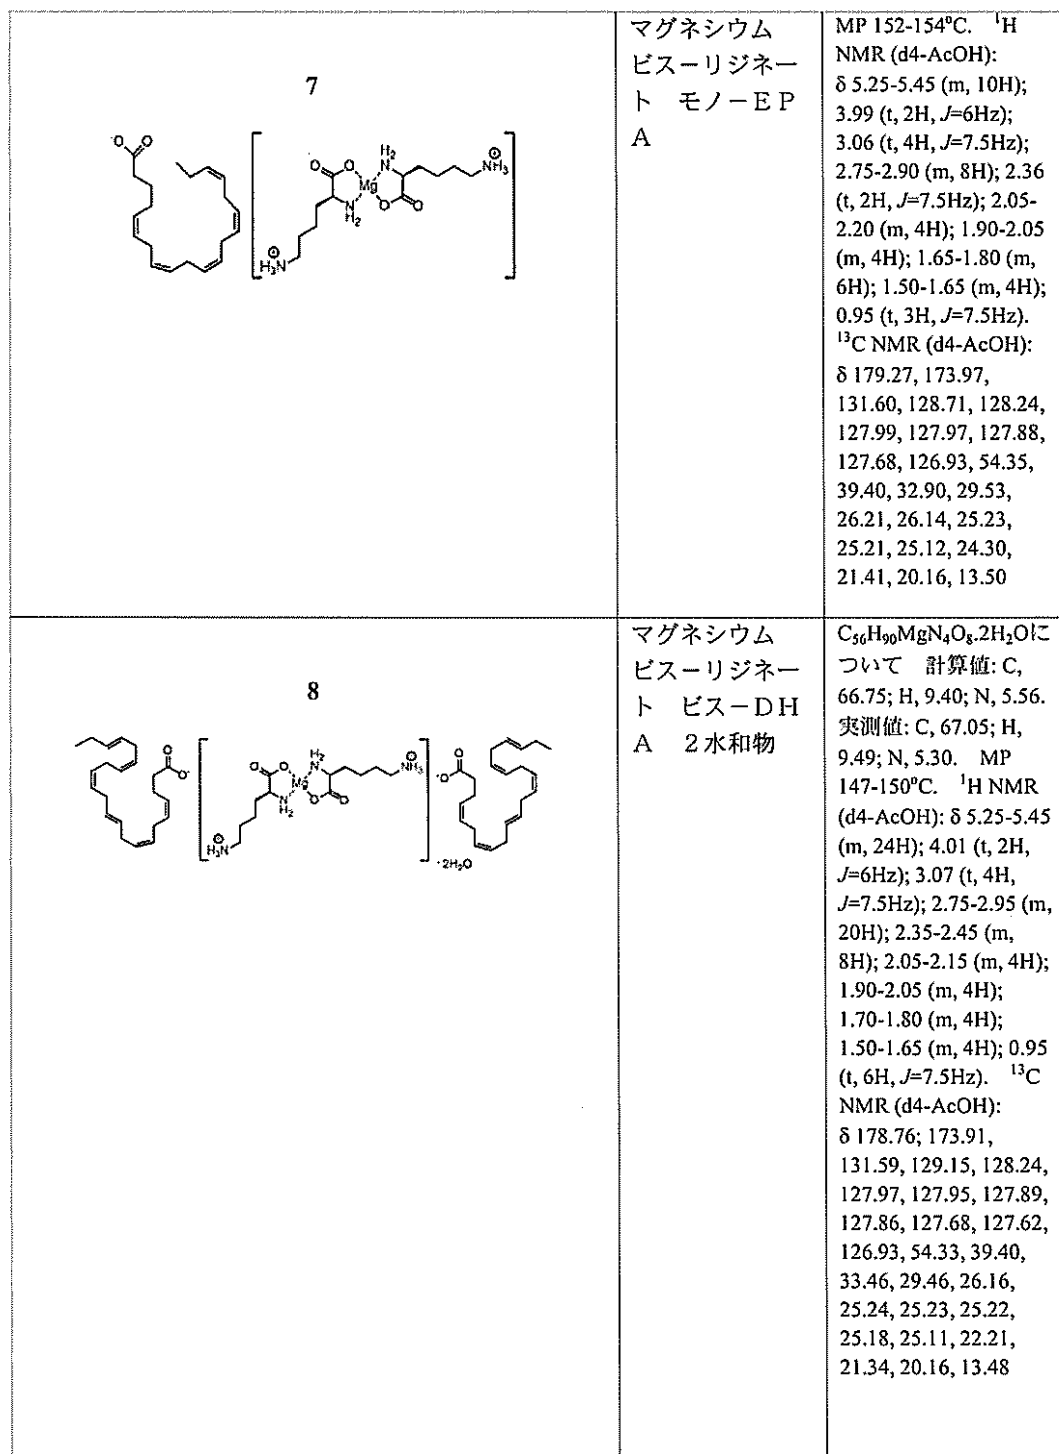 7
マグネシウム
ビス－リジネー
ト　モノ－ＥＰ
Ａ
MP 152-154⁰C.　¹H
NMR (d4-AcOH):
δ 5.25-5.45 (m, 10H);
3.99 (t, 2H, J=6Hz);
3.06 (t, 4H, J=7.5Hz);
2.75-2.90 (m, 8H); 2.36
(t, 2H, J=7.5Hz); 2.05-
2.20 (m, 4H); 1.90-2.05
(m, 4H); 1.65-1.80 (m,
6H); 1.50-1.65 (m, 4H);
0.95 (t, 3H, J=7.5Hz).
¹³C NMR (d4-AcOH):
δ 179.27, 173.97,
131.60, 128.71, 128.24,
127.99, 127.97, 127.88,
127.68, 126.93, 54.35,
39.40, 32.90, 29.53,
26.21, 26.14, 25.23,
25.21, 25.12, 24.30,
21.41, 20.16, 13.50
8
·2H₂O
マグネシウム
ビス－リジネー
ト　ビス－ＤＨ
Ａ　２水和物
C₅₆H₉₀MgN₄O₈.2H₂Oに
ついて　計算値: C,
66.75; H, 9.40; N, 5.56.
実測値: C, 67.05; H,
9.49; N, 5.30.　MP
147-150⁰C.　¹H NMR
(d4-AcOH): δ 5.25-5.45
(m, 24H); 4.01 (t, 2H,
J=6Hz); 3.07 (t, 4H,
J=7.5Hz); 2.75-2.95 (m,
20H); 2.35-2.45 (m,
8H); 2.05-2.15 (m, 4H);
1.90-2.05 (m, 4H);
1.70-1.80 (m, 4H);
1.50-1.65 (m, 4H); 0.95
(t, 6H, J=7.5Hz).　¹³C
NMR (d4-AcOH):
δ 178.76; 173.91,
131.59, 129.15, 128.24,
127.97, 127.95, 127.89,
127.86, 127.68, 127.62,
126.93, 54.33, 39.40,
33.46, 29.46, 26.16,
25.24, 25.23, 25.22,
25.18, 25.11, 22.21,
21.34, 20.16, 13.48